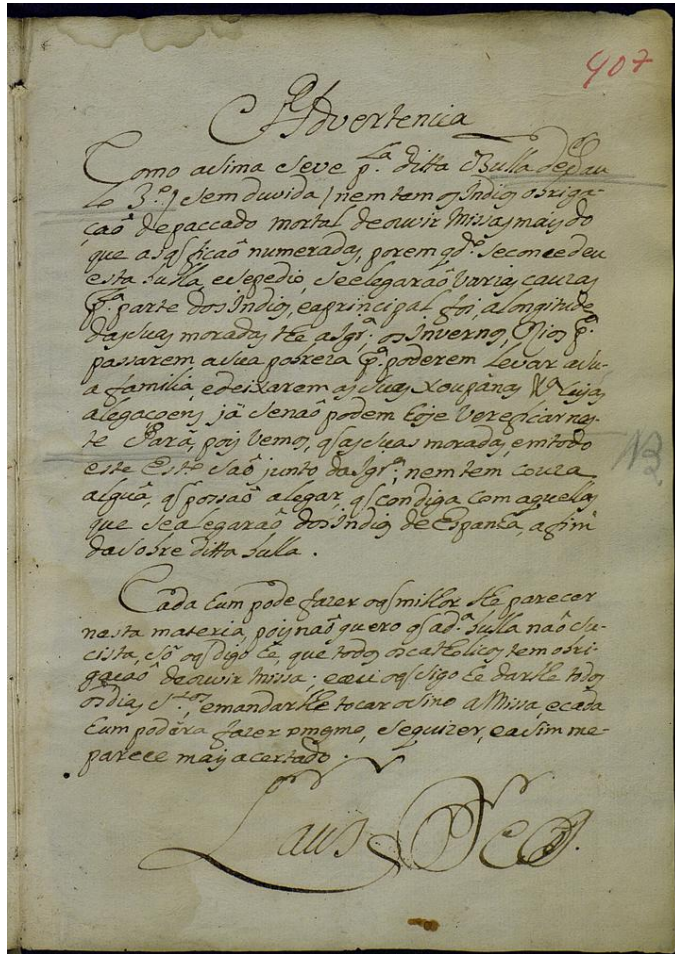 907
Advertencia
Como asima se ve p.la ditta Bulla de Pau
lo 3.º / sem duvida / nem tem os Indios obriga-
çaõ de peccado mortal de ouvir Missas mais do
que as q̃ ficaõ numeradas, porem qd.º se concedeu
esta bulla, e se pedio, se elegaraõ varias cauzas
p.ª parte dos Indios, e a principal foi, a longitude
das suas moradas the a Igr.ª os Invernos, Rios p.ª
passarem a sua pobreza p.ª poderem levar a su-
a familia, e deixarem as suas Xoupanas &.ª cujas
alegaçoens já senaõ podem hoje verificar nes-
te Pará, pois vemos, q̃ as suas moradas, em todo
este Este saõ junto da Igr.ª; nem tem couza
algũa, q̃ possaõ alegar, q̃ condiga com aquellas
que se alegaraõ dos Indios de Espanha, a fim
da sobre ditta bulla.
NB.
Cada hum pode fazer o q̃ milhor lhe parecer
nesta materia, pois naõ quero q̃ a d.ª bulla naõ su-
cista, só o q̃ digo he, que todos os catholicos tem obri-
gaçaõ de ouvir missa; e o q̃ sigo he darlhe todos
os dias S.tos, e mandarlhe tocar o sino a Missa, e cada
hum podéra fazer o mesmo, se quizer, e asim me
parece mais acertado.
Laus Deo.